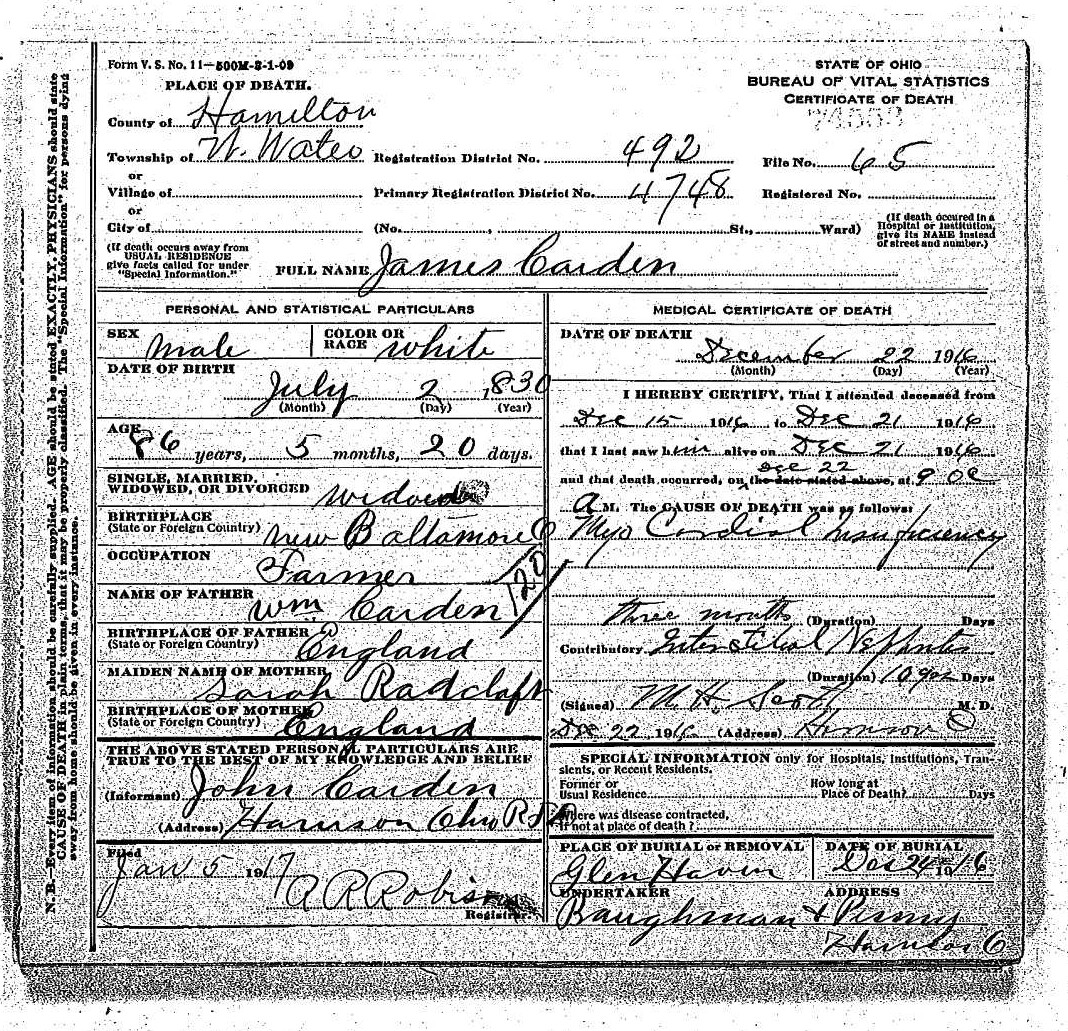 Form V. S. No. 11—500M-3-1-09
PLACE OF DEATH.
STATE OF OHIO
BUREAU OF VITAL STATISTICS
CERTIFICATE OF DEATH
County of Hamilton
Township of Registration District No. 492 File No. 65
or
Village of Primary Registration District No. 4748 Registered No.
or
City of (No. , St., Ward)
(If death occured in a Hospital or Institution, give its NAME instead of street and number.)
(If death occurs away from USUAL RESIDENCE give facts called for under "Special Information.")
FULL NAME James Carden
PERSONAL AND STATISTICAL PARTICULARS
SEX male COLOR OR RACE white
DATE OF BIRTH
July 2, 1830
(Month) (Day) (Year)
AGE
86 years, 5 months, 20 days.
SINGLE, MARRIED, WIDOWED, OR DIVORCED
BIRTHPLACE
(State or Foreign Country) new Baltamore O
OCCUPATION
Farmer
120
NAME OF FATHER
Wm Carden
BIRTHPLACE OF FATHER
(State or Foreign Country) England
MAIDEN NAME OF MOTHER
Sarah Radclaft
BIRTHPLACE OF MOTHER
(State or Foreign Country) England
THE ABOVE STATED PERSONAL PARTICULARS ARE
TRUE TO THE BEST OF MY KNOWLEDGE AND BELIEF
(Informant) John Carden
(Address) Harrison Ohio
Filed
Jan 5 1917
A R Robison
Registrar.
MEDICAL CERTIFICATE OF DEATH
DATE OF DEATH
December 22 1916
(Month) (Day) (Year)
I HEREBY CERTIFY, That I attended deceased from
Dec 15 1916 to Dec 21 1916
that I last saw him alive on Dec 21 1916
Dec 22
and that death occurred, on the date stated above, at 9
a M. The CAUSE OF DEATH was as follows:
Myo Cordial Insuficiency
three months (Duration) Days
Contributory Interstitial Nephritis
(Duration) Days
(Signed) M. H. M. D.
Dec 22 1916 (Address) Harrison O
SPECIAL INFORMATION only for Hospitals, Institutions, Transients, or Recent Residents.
Former or Usual Residence How long at Place of Death? Days
Where was disease contracted, if not at place of death?
PLACE OF BURIAL or REMOVAL DATE OF BURIAL
Glen Haven Dec 24 1916
UNDERTAKER ADDRESS
Baughman &
Harrison O
N. B.—Every item of information should be carefully supplied. AGE should be stated EXACTLY. PHYSICIANS should state
CAUSE OF DEATH in plain terms, that it may be properly classified. The "Special Information" for persons dying
away from home should be given in every instance.